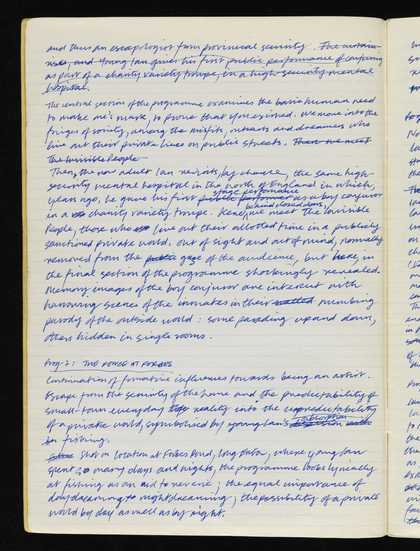 and thus an escapologist from provincial security. The curtain
rises, and Young Ian gives his first public performance of conjuring
as part of a charity variety troupe, in a high-security mental
hospital.
The central section of the programme examines the basic human need
to make one's mark, to prove that you existed. We move into the
fringes of society, among the misfits, outcasts and dreamers who
live out their private lives on public streets. Then we meet
the Invisible People
Then, the now adult Ian revisits, by chance, the same high-
security mental hospital in the north of England in which,
years ago, he gave his first public performance as a boy conjuror
stage performance
in a charity variety troupe. Here, we meet the Invisible
behind closed doors,
People, those who live out their allotted time in a publicly
sanctioned private world. Out of sight and out of mind, normally
removed from the public gaze of the audience, but here, in
the final section of the programme shockingly revealed.
Memory images of the boy conjuror are intercut with
harrowing scenes of the inmates in their numbing
parody of the outside world: some parading up and down,
others hidden in single rooms.
Prog 2: THE POWER OF
Continuation of formative influences towards being an artist.
Escape from the security of the home and the predictability of
small-town everyday reality into the unpredictability
of a private world, symbolised by young Ian's
obsession
fishing.
Shot on location at Forbes Pond, where young Ian
spent so many days and nights, the programme looks lyrically
at fishing as an aid to reverie; the equal importance of
daydreaming to nightdreaming; the possibility of a private
world by day as well as by night.